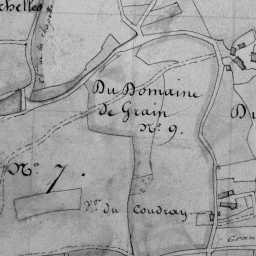 chelles
Du Domaine
de Grain
N.o 9.
Du
N.o 7.
du Coudray
Gran